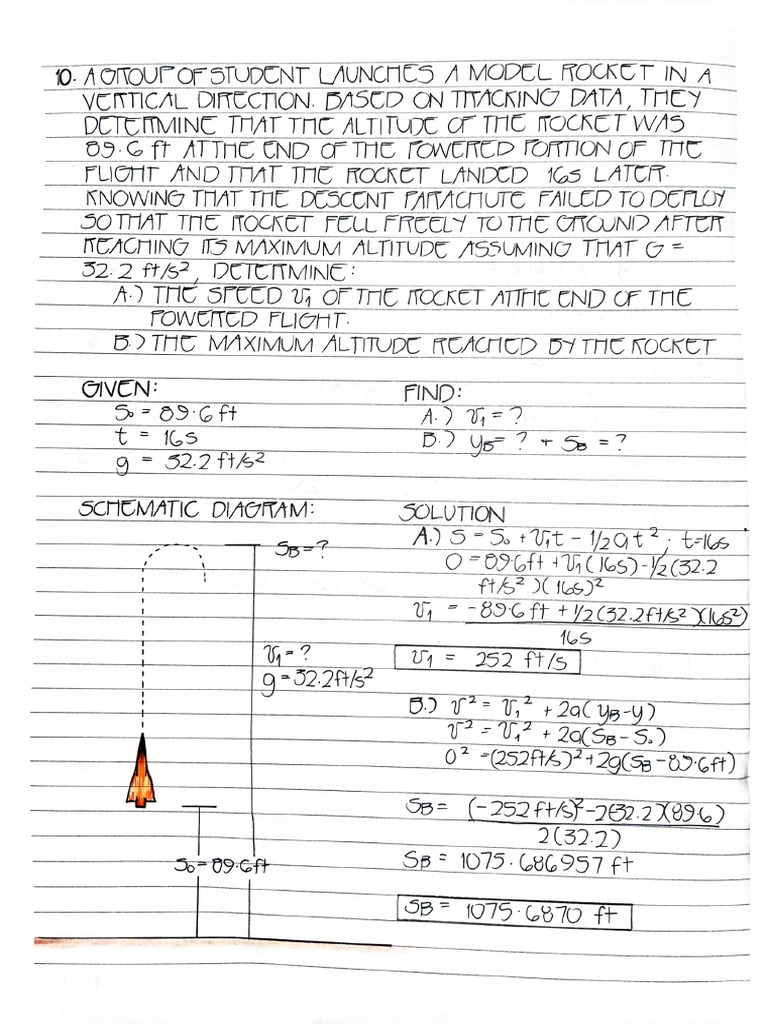 10. A GROUP OF STUDENT LAUNCHES A MODEL ROCKET IN A
VERTICAL DIRECTION. BASED ON TRACKING DATA, THEY
DETERMINE THAT THE ALTITUDE OF THE ROCKET WAS
89.6 ft AT THE END OF THE POWERED PORTION OF THE
FLIGHT AND THAT THE ROCKET LANDED 16s LATER.
KNOWING THAT THE DESCENT PARACHUTE FAILED TO DEPLOY
SO THAT THE ROCKET FELL FREELY TO THE GROUND AFTER
REACHING ITS MAXIMUM ALTITUDE ASSUMING THAT G =
32.2 ft/s², DETERMINE:
A.) THE SPEED V₁ OF THE ROCKET AT THE END OF THE
POWERED FLIGHT.
B.) THE MAXIMUM ALTITUDE REACHED BY THE ROCKET
GIVEN:
S₀ = 89.6 ft
t = 16s
g = 32.2 ft/s²
FIND:
A.) V₁ = ?
B.) yB = ? + SB = ?
SCHEMATIC DIAGRAM:
SB = ?
V₁ = ?
g = 32.2ft/s²
S₀ = 89.6ft
SOLUTION
A.) S = S₀ + V₁t - 1/2 at²; t=16s
0 = 89.6ft + V₁(16s) - 1/2(32.2
ft/s²)(16s)²
V₁ = -89.6 ft + 1/2(32.2ft/s²)(16s²)
16s
V₁ = 252 ft/s
B.) V² = V₁² + 2a(yB-y)
V² = V₁² + 2a(SB - S₀)
0² = (252ft/s)² + 2g(SB - 89.6ft)
SB = (-252 ft/s)² - 2(32.2)(89.6)
2(32.2)
SB = 1075.686957 ft
SB = 1075.6870 ft